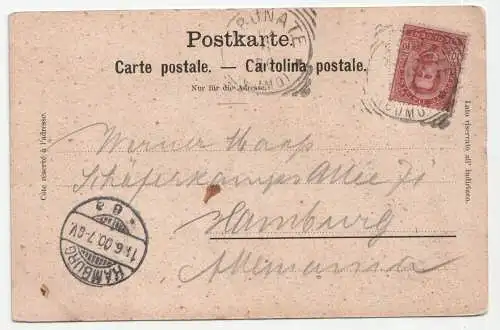 Postkarte.
Carte postale. — Cartolina postale.
Nur für die Adresse.
Côté réservé à l'adresse.
Lato riservato all' indirizzo.
BRUNATE
(COMO)
(COMO)
Werner Haap
Schäferkamps Allee 71
Hamburg
Allemania
HAMBURG
11.6.00.7-8V.
* 6 a